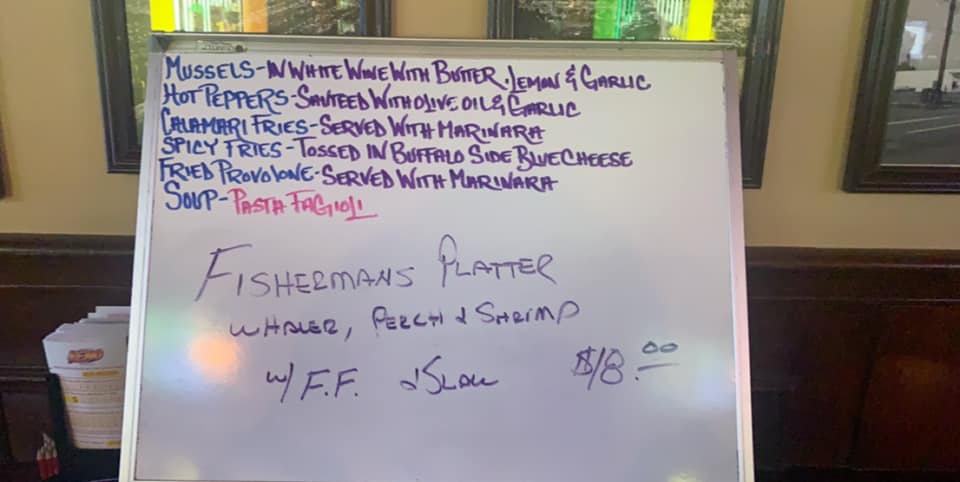 MUSSELS-IN WHITE WINE WITH BUTTER, LEMON & GARLIC
HOT PEPPERS-SAUTEED WITH OLIVE OIL & GARLIC
CALAMARI FRIES-SERVED WITH MARINARA
SPICY FRIES-TOSSED IN BUFFALO SIDE BLUECHEESE
FRIED PROVOLONE-SERVED WITH MARINARA
SOUP-PASTA FAGIOLI
FISHERMANS PLATTER
WHALER, PERCH & SHRIMP
w/ F.F. & SLAW $18.00